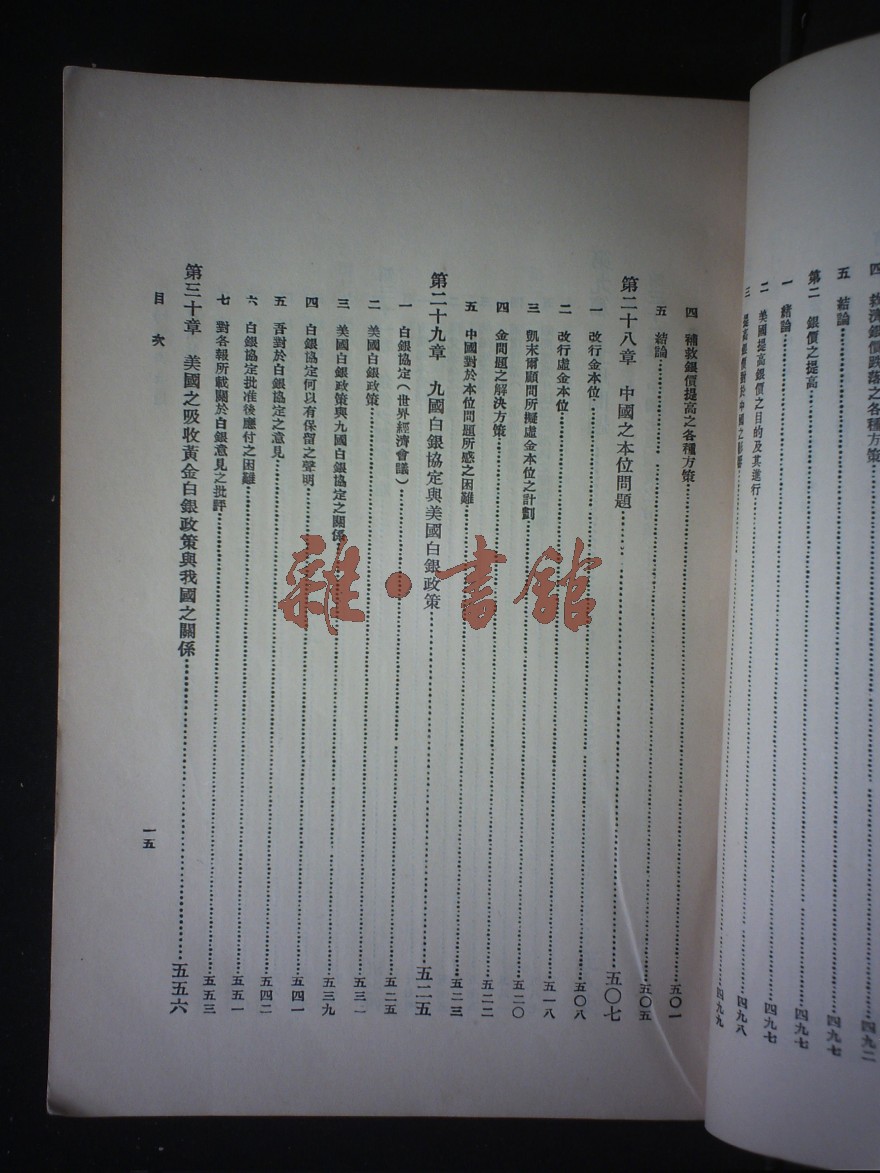 四　救濟銀價跌落之各種方策……四九二
五　結論……四九七
第二　銀價之提高……四九七
一　緒論……四九七
二　美國提高銀價之目的及其進行……四九八
三　提高銀價對於中國之影響……四九九
四　補救銀價提高之各種方策……五〇一
五　結論……五〇五
第二十八章　中國之本位問題……五〇七
一　改行金本位……五〇八
二　改行虛金本位……五一八
三　凱末爾顧問所擬虛金本位之計劃……五二〇
四　金問題之解決方策……五二二
五　中國對於本位問題所感之困難……五二三
第二十九章　九國白銀協定與美國白銀政策……五二五
一　白銀協定（世界經濟會議）……五二五
二　美國白銀政策……五三一
三　美國白銀政策與九國白銀協定之關係……五三九
四　白銀協定何以有保留之聲明……五四一
五　吾對於白銀協定之意見……五四二
六　白銀協定批准後應付之困難……五五一
七　對各報所載關於白銀意見之批評……五五三
第三十章　美國之吸收黃金白銀政策與我國之關係……五五六
目次
一五
雜·書館